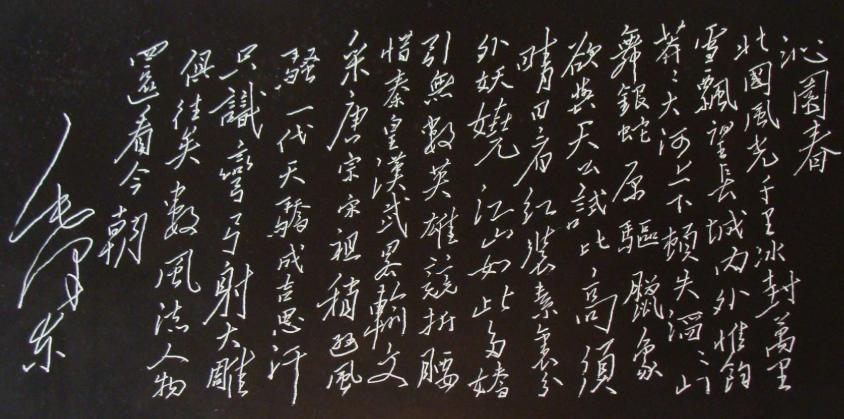 沁園春
北國風光千里冰封萬里
雪飄望長城內外惟餘
莽〻大河上下頓失滔〻山
舞銀蛇原驅臘象
欲與天公試比高須
晴日看紅裝素裹分
外妖嬈江山如此多嬌
引無數英雄競折腰
惜秦皇漢武畧輸文
采唐宗宋祖稍遜風
騷一代天驕成吉思汗
只識彎弓射大雕
俱往矣數風流人物
還看今朝
毛澤东